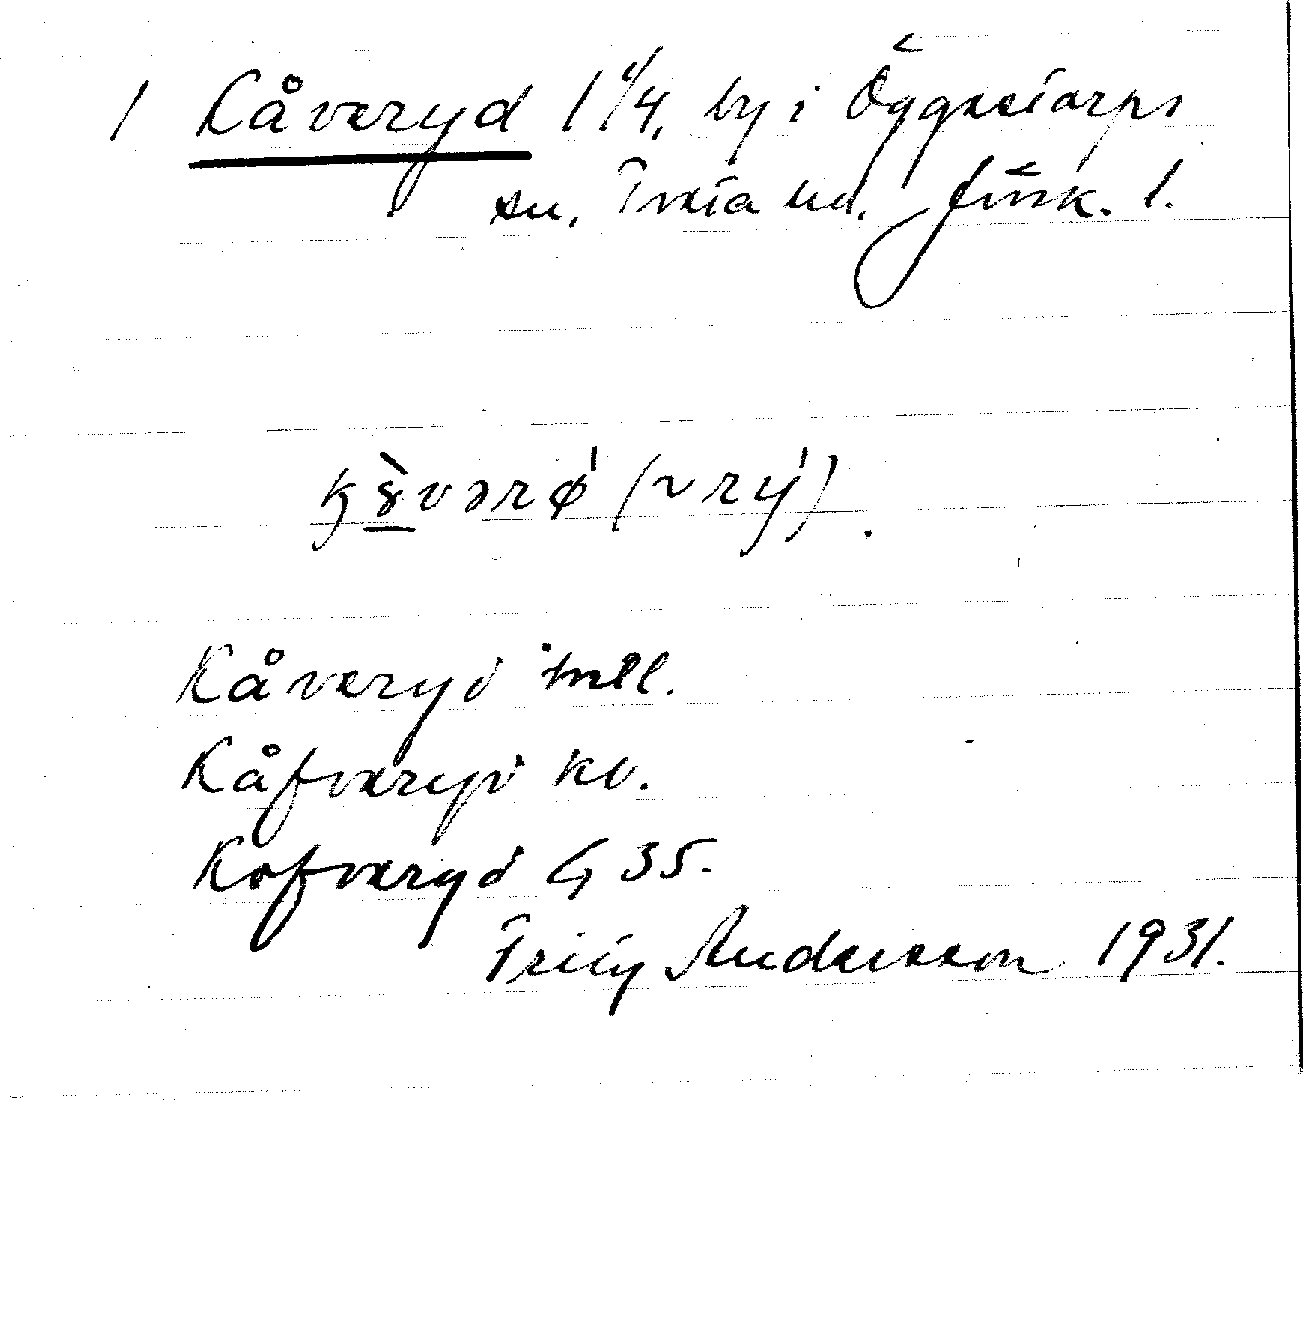 1 Kåveryd 1 1/4, by i Öggestorps
sn, Tveta hd, Jönk. l.
Kåveryd tmell.
Kåfveryd kv.
Kofveryd G 35.
Andersson 1931.